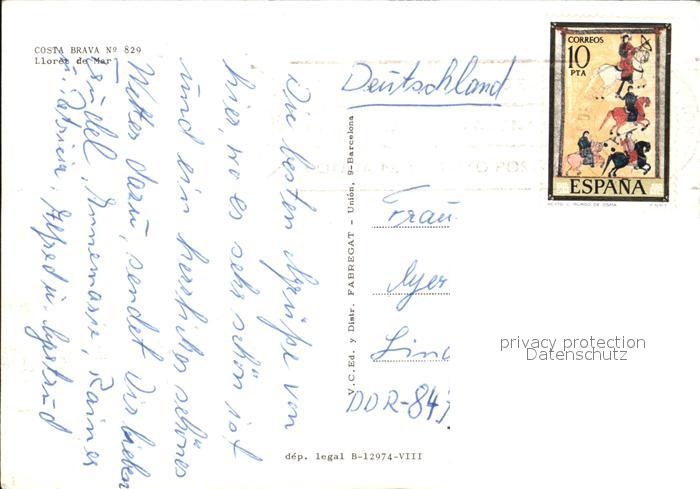 COSTA BRAVA Nº 829
Lloret de Mar
Die besten Grüße von
hier, wo es sehr schön ist
und ein herrliches schönes
Wetter dazu, sendet Dir lieben
Annemarie, Rainer
u. Patricia, Alfred u.
V.C.Ed. y Distr. FABREGAT - Unión, 9-Barcelona
dép. legal B-12974-VIII
Deutschland
Frau
DDR-84
CORREOS
10
PTA
ESPAÑA
privacy protection
Datenschutz